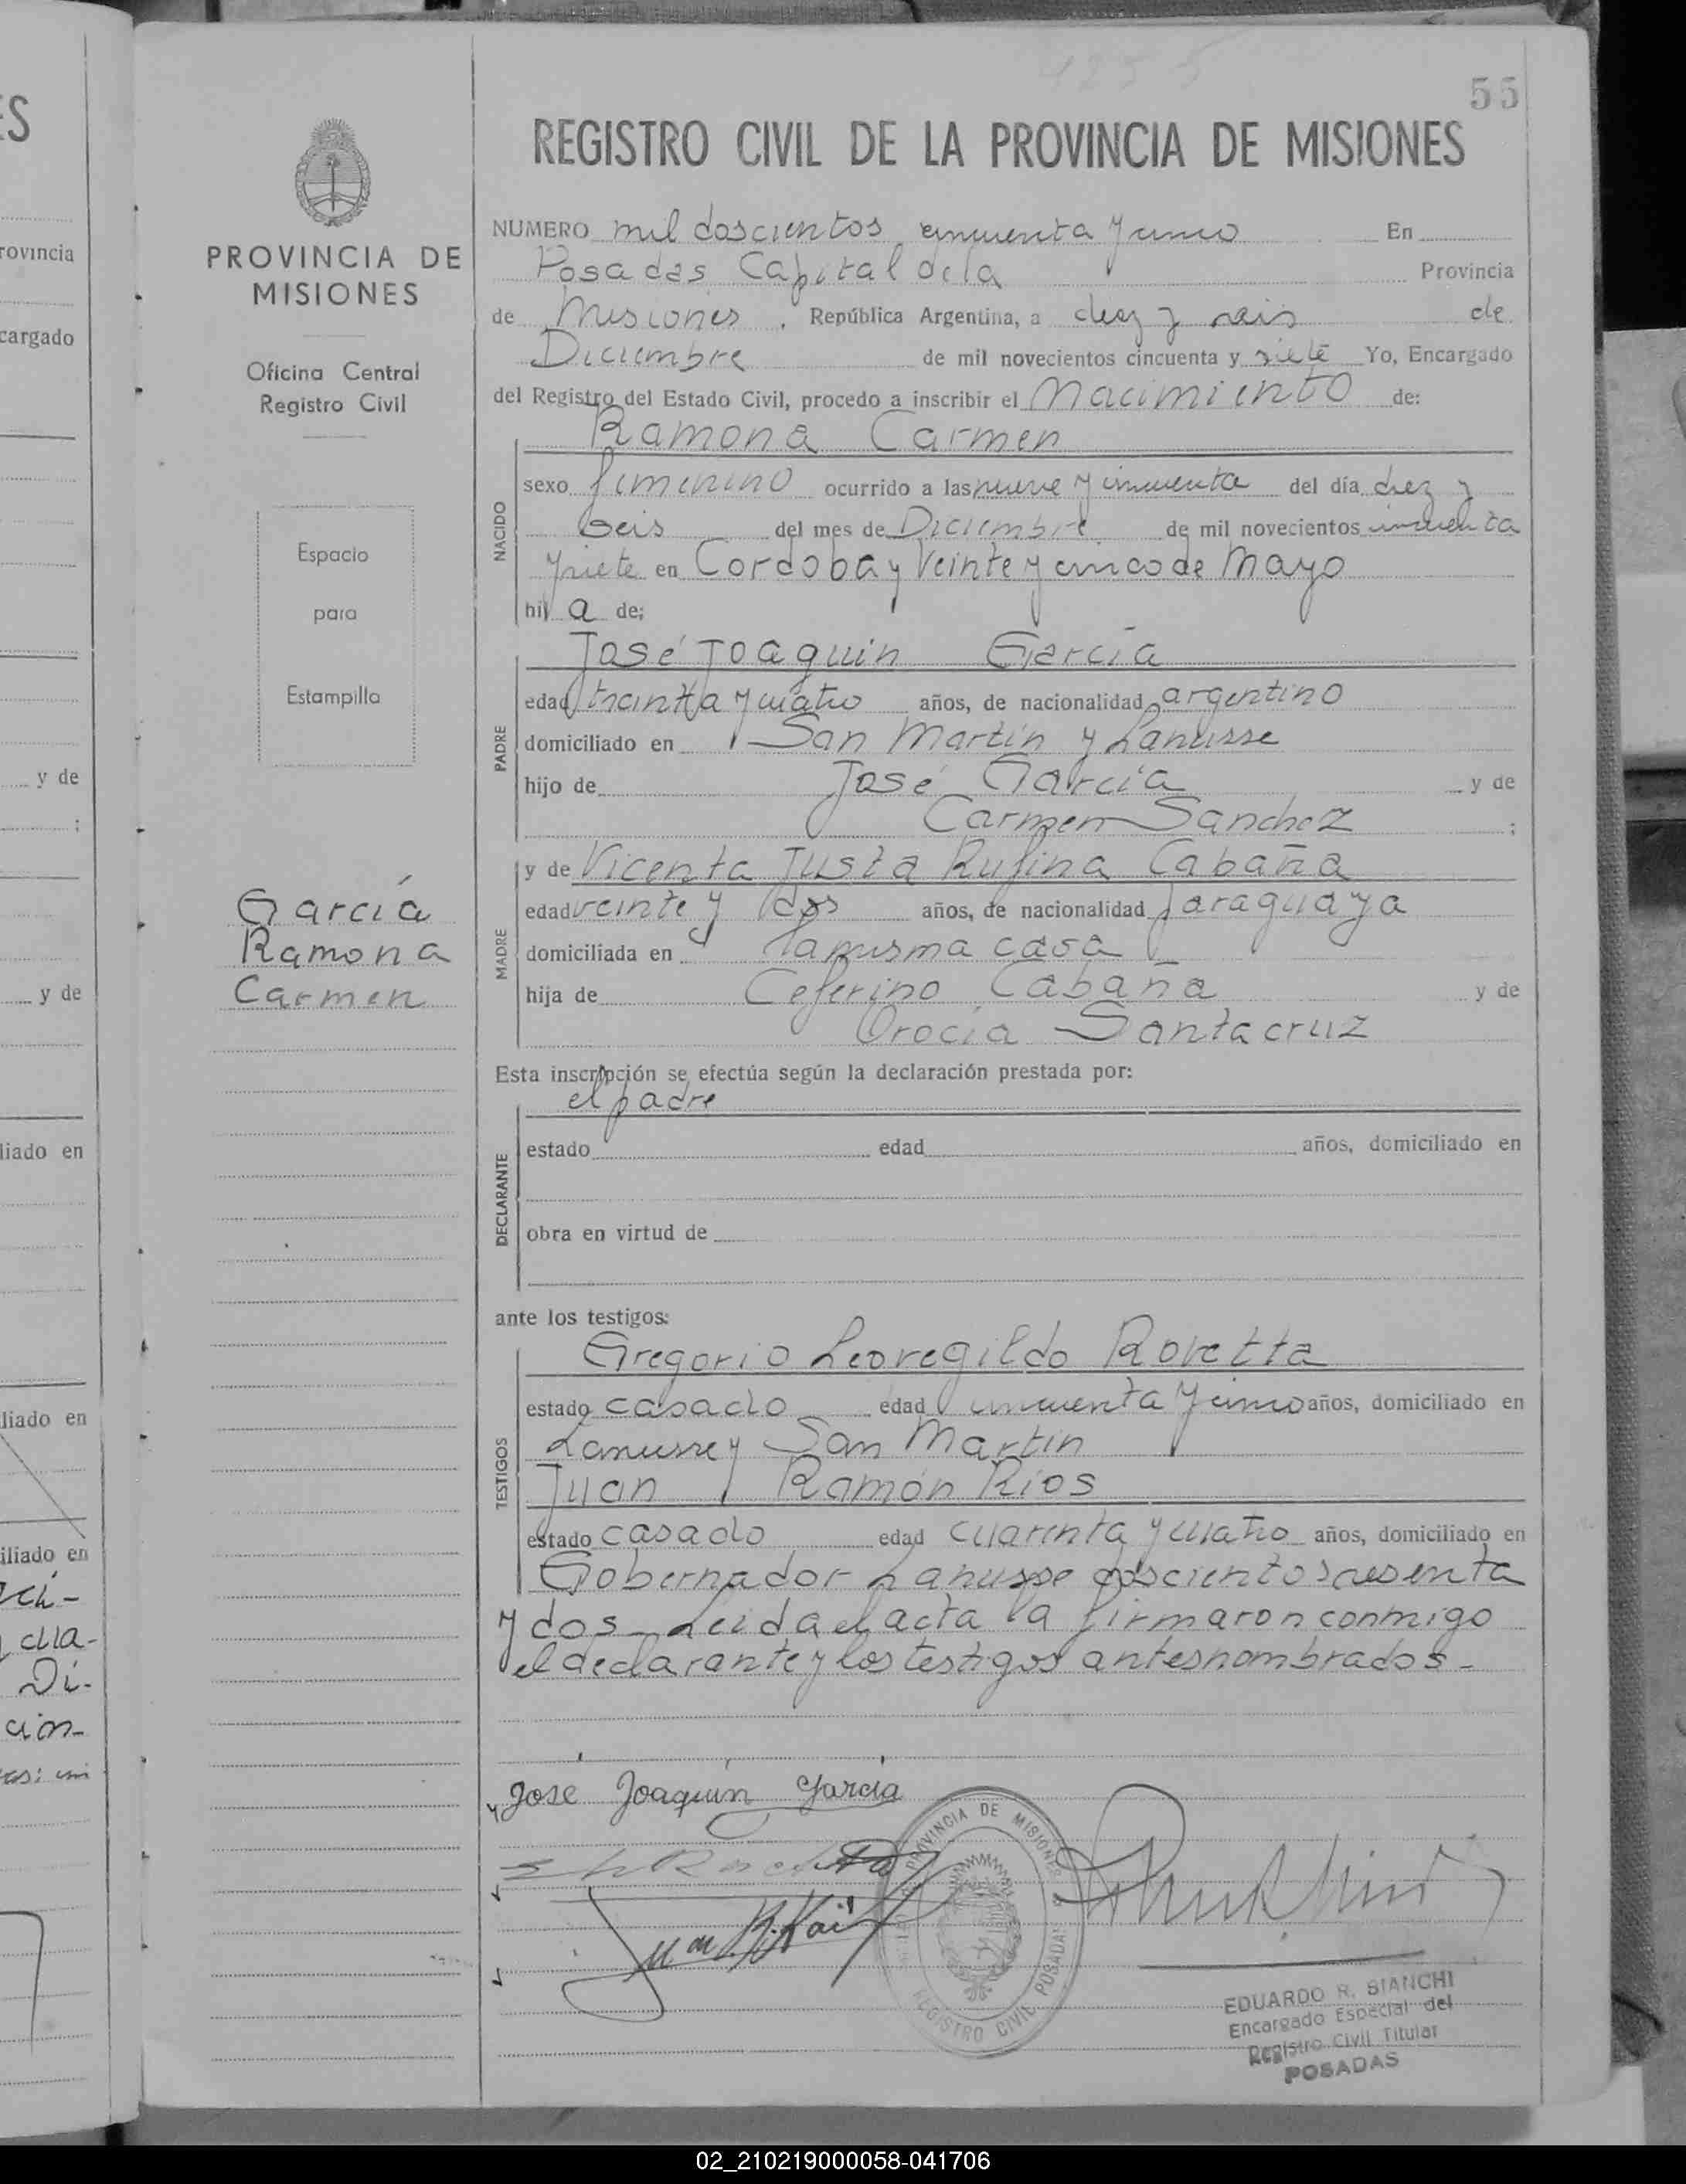 1255
55
REGISTRO CIVIL DE LA PROVINCIA DE MISIONES
PROVINCIA DE
MISIONES
Oficina Central
Registro Civil
Espacio
para
Estampilla
García
Ramona
Carmen
NUMERO mil doscientos cincuenta y cinco En
Posadas Capital de la Provincia
de Misiones, República Argentina, a diez y seis de
Diciembre de mil novecientos cincuenta y siete Yo, Encargado
del Registro del Estado Civil, procedo a inscribir el Nacimiento de:
Ramona Carmen
NACIDO
sexo femenino ocurrido a las nueve y cincuenta del día diez y
seis del mes de Diciembre de mil novecientos cincuenta
y siete en Cordoba y Veinte y cinco de Mayo
hij a de;
José Joaquin García
PADRE
edad treinta y cuatro años, de nacionalidad argentino
domiciliado en San Martín y Lanusse
hijo de José García y de
Carmen Sanchez ;
y de Vicenta Justa Rufina Cabaña
MADRE
edad veinte y dos años, de nacionalidad paraguaya
domiciliada en la misma casa
hija de Ceferino Cabaña y de
Orocia Santacruz
Esta inscripción se efectúa según la declaración prestada por:
el padre
DECLARANTE
estado edad años, domiciliado en
obra en virtud de
ante los testigos:
Gregorio Leovegildo Rovetta
TESTIGOS
estado casado edad cincuenta y cinco años, domiciliado en
Lanusse y San Martín
Juan Ramón Ríos
estado casado edad cuarenta y cuatro años, domiciliado en
Gobernador Lanusse doscientos sesenta
y dos_ Leida el acta la firmaron conmigo
el declarante y los testigos antes nombrados_
José Joaquín García
PROVINCIA DE MISIONES
REGISTRO CIVIL POSADAS
EDUARDO R. BIANCHI
Encargado Especial del
Registro Civil Titular
POSADAS
ES
rovincia
cargado
y de
;
y de
liado en
liado en
iliado en
cua-
Di-
02_210219000058-041706